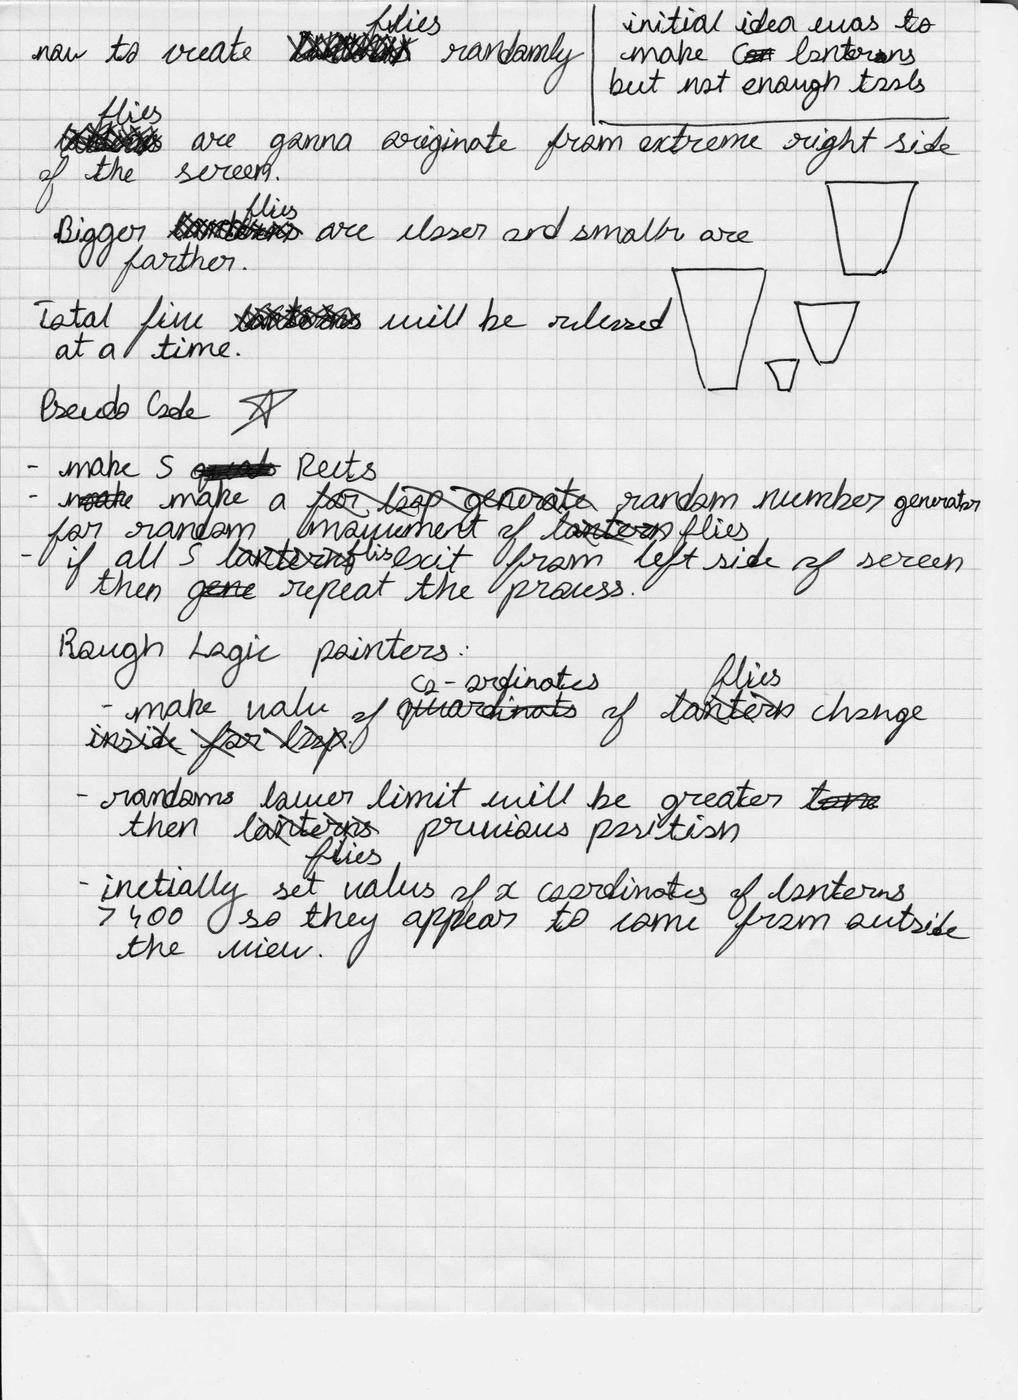 flies
now to create lanterns randomly
initial idea was to
make lanterns
but not enough tools
flies
are gonna originate from extreme right side
of the screen.
flies
Bigger lanterns are closer and smaller are
farther.
Total five lanterns will be released
at a time.
Pseudo Code
- make 5 quads Rects
- make make a for loop generate random number generator
for random movement of lantern flies
- if all 5 lanterns flies exit from left side of screen
then gene repeat the process.
Rough Logic pointers:
co-ordinates flies
- make valu of quardinats of lantern change
inside for loop.
- randoms lower limit will be greater
then lanterns previous position
flies
- initially set values of x coordinates of lanterns
>400 so they appear to come from outside
the view.